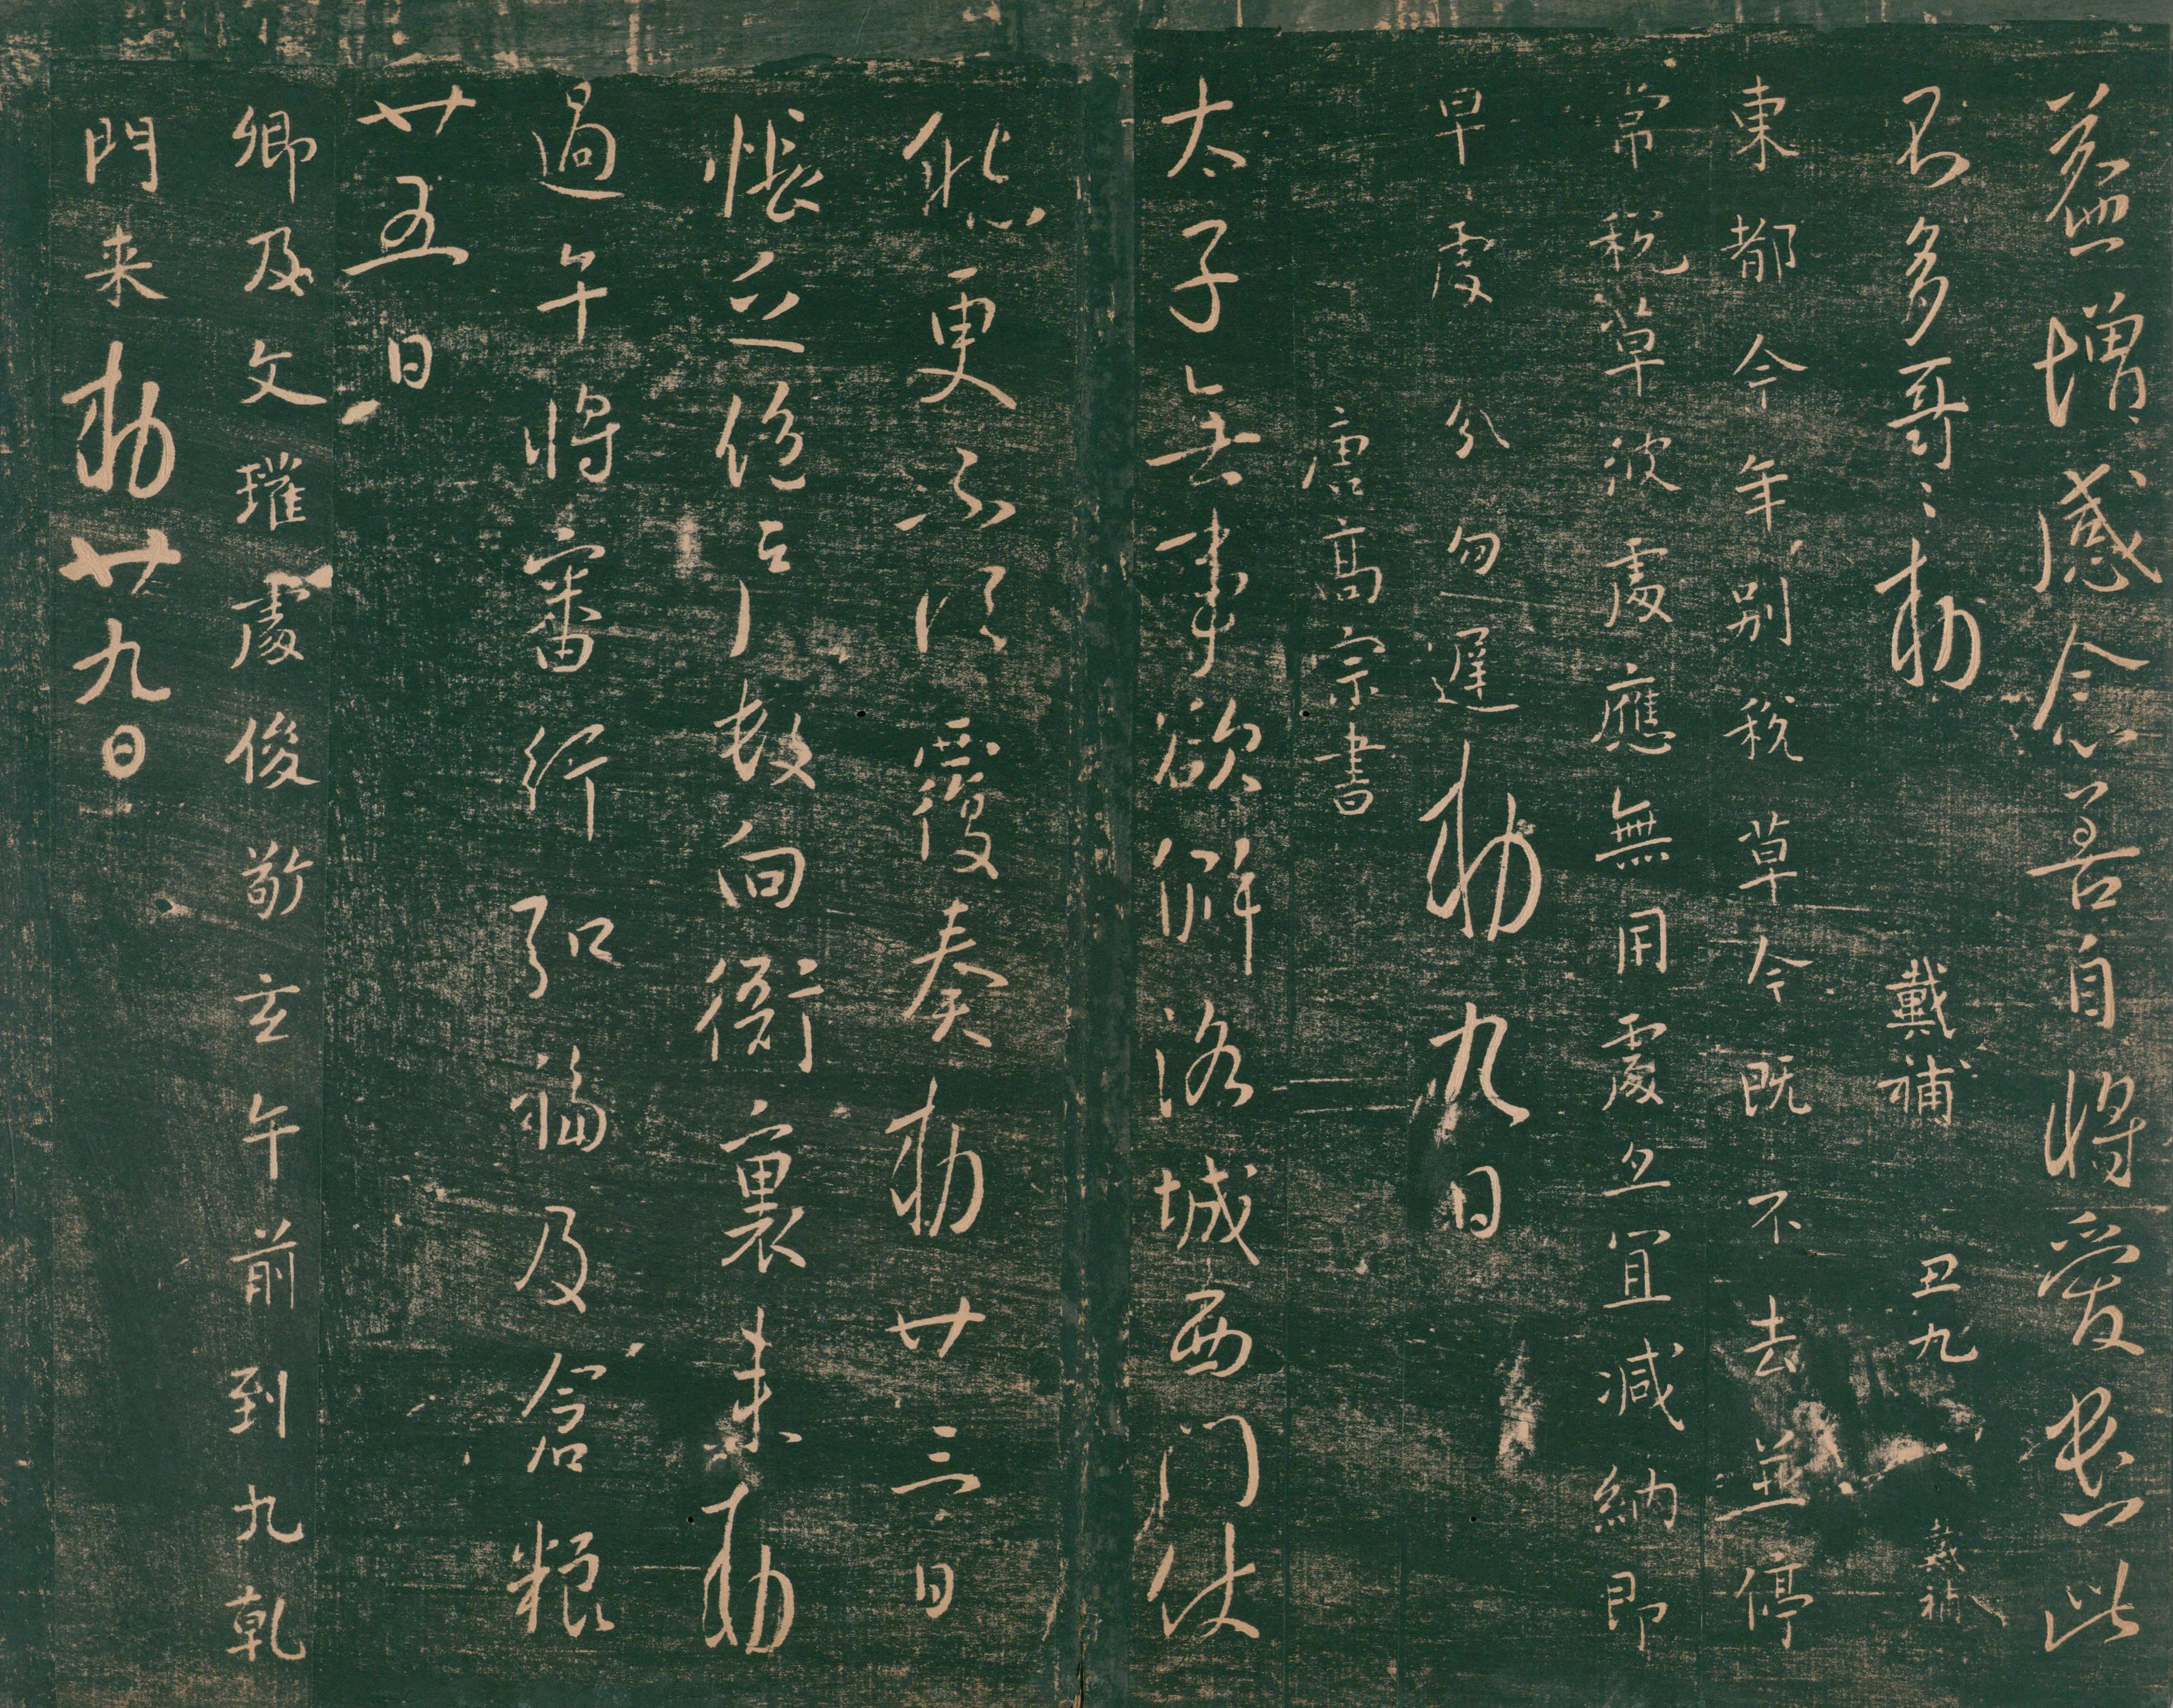 益增感念善自將愛悉此
不多哥哥勅 戴補 丑九 戴補
東都今年別税草今既不去並停
常税草波處應無用處且宜減納即
早處分勿遲勅九日
唐高宗書
太子無事欲解洛城西門仗
然更不須覆奏勅廿三日
悵之絶
數向衙裏来勅
過午將審行弘福及倉粮
廿五日
卿及文瓘處俊敬玄午前到九乾
門来勅廿九日